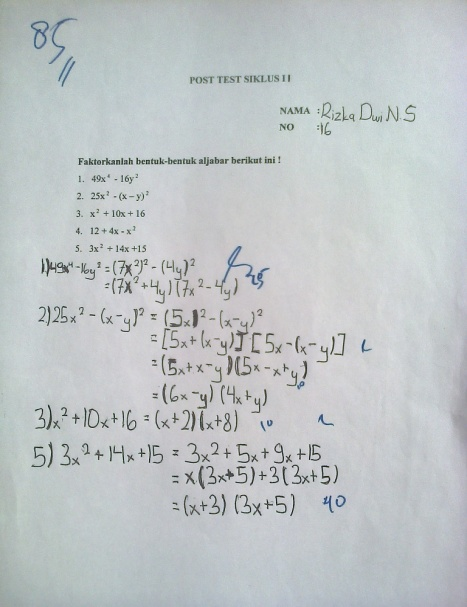 85
POST TEST SIKLUS II
NAMA : Rizka Dwi N.S
NO : 16
Faktorkanlah bentuk-bentuk aljabar berikut ini !
1. 49x⁴ - 16y²
2. 25x² - (x – y)²
3. x² + 10x + 16
4. 12 + 4x - x²
5. 3x² + 14x +15
1) 49x⁴ - 16y² = (7x²)² - (4y)²
= (7x² + 4y) (7x² - 4y)
2) 25x² - (x-y)² = (5x)² - (x-y)²
= [5x + (x-y)] [5x - (x-y)]
= (5x + x - y) (5x - x + y)
= (6x - y) (4x + y)
3) x² + 10x + 16 = (x+2) (x+8) 10
5) 3x² + 14x + 15 = 3x² + 5x + 9x + 15
= x(3x+5) + 3(3x+5)
= (x+3) (3x+5) 40